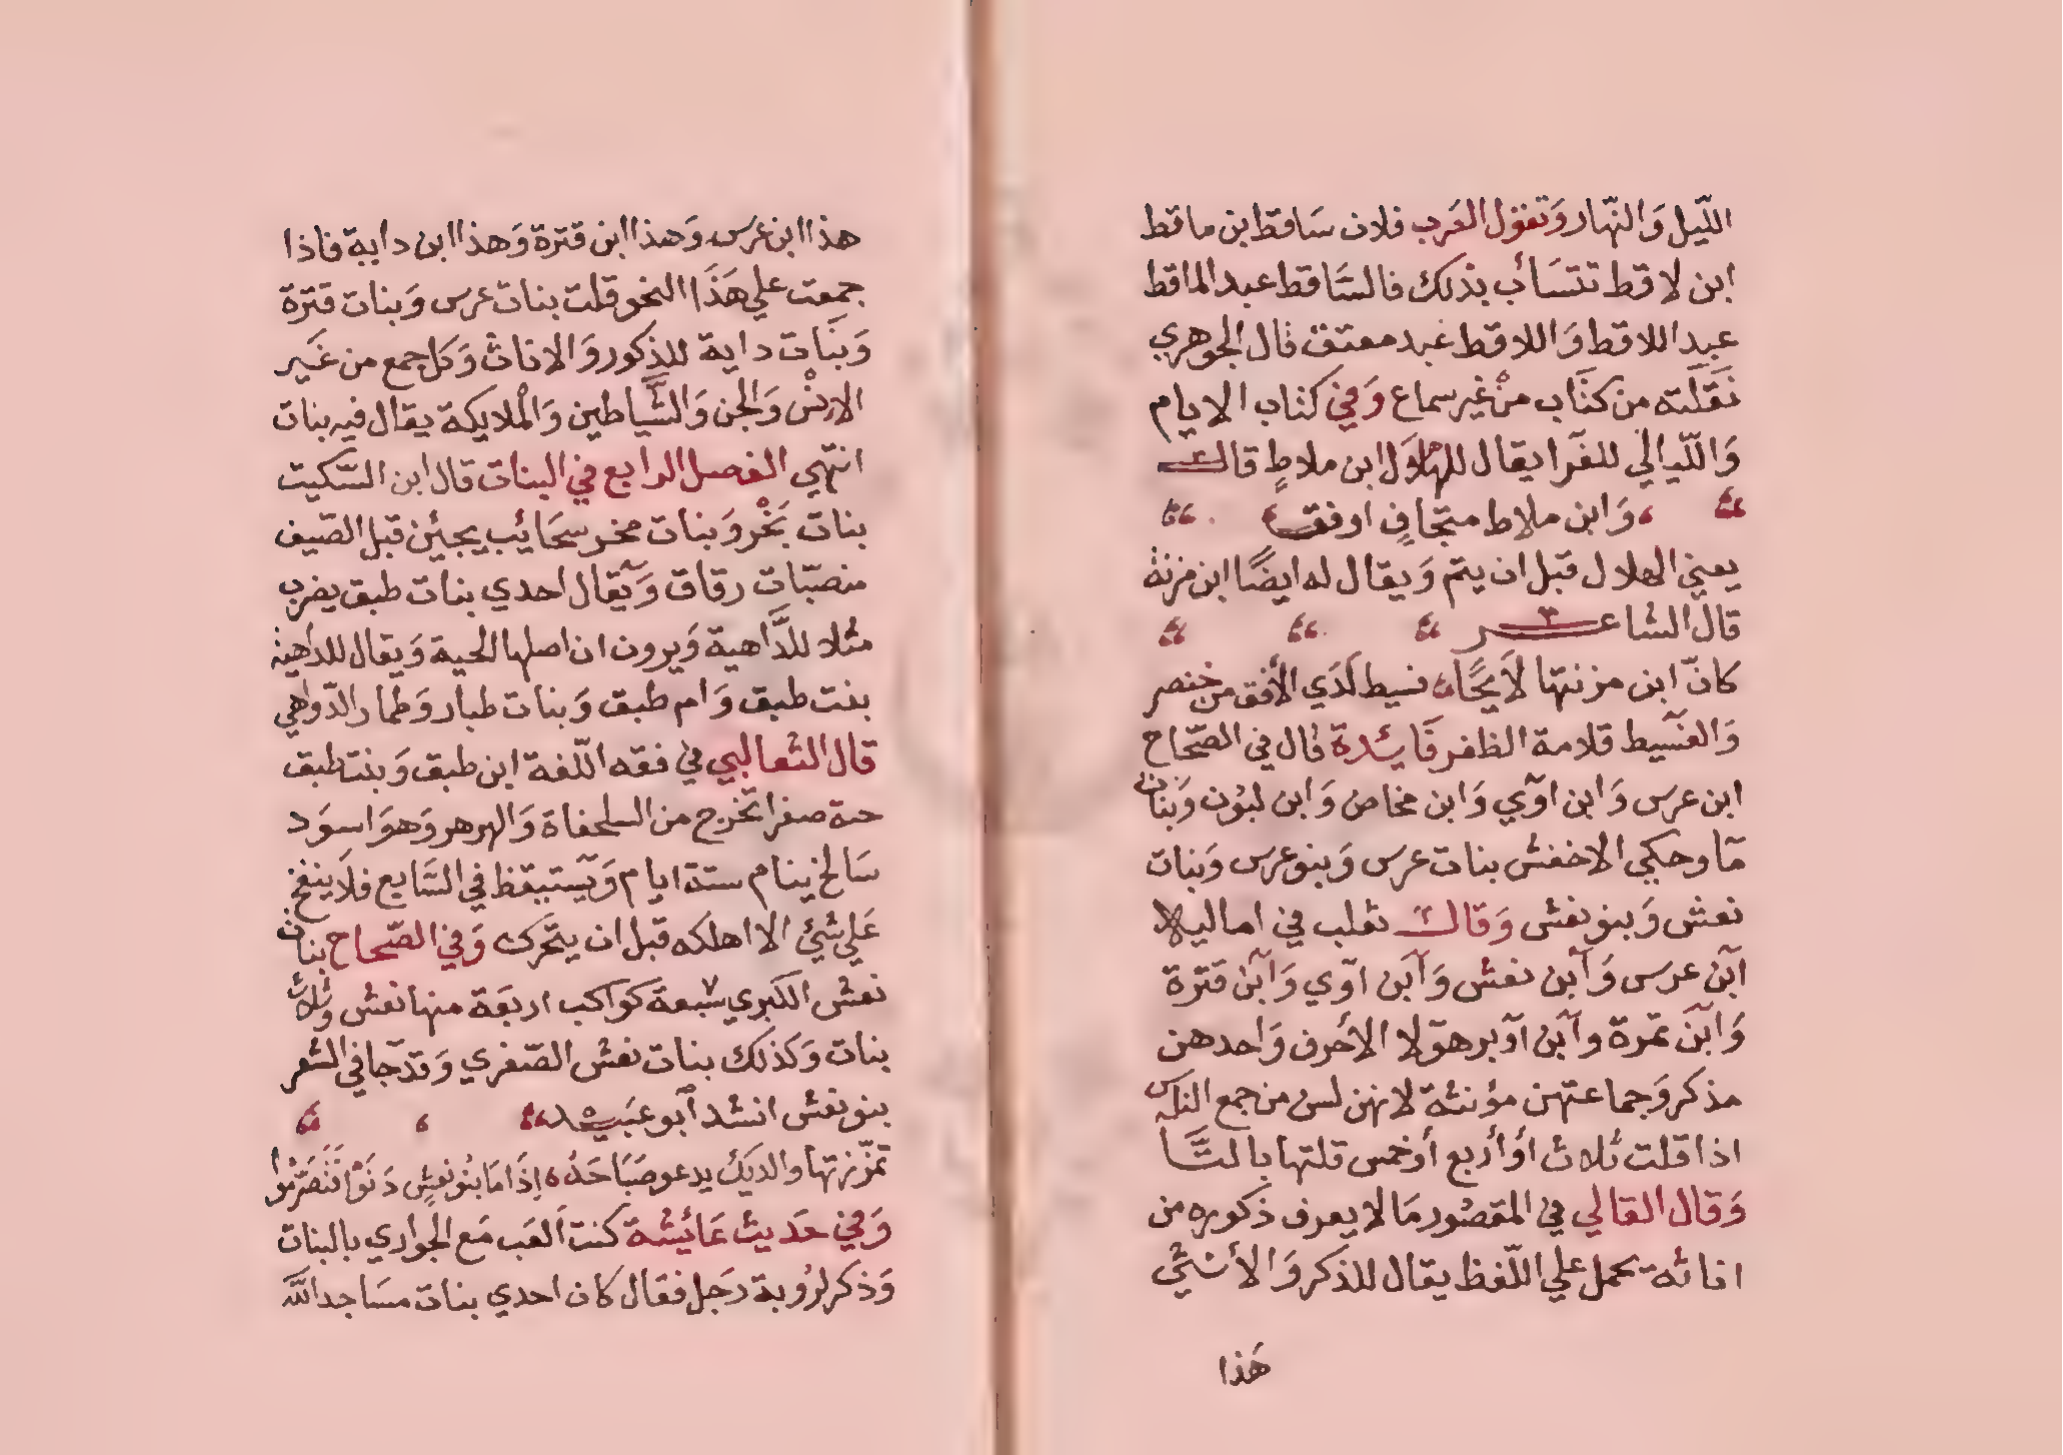 الليل وَالنّهار وَتقول العَرب فلان سَاقط ابن ماقط
ابن لاقط تتسَابّ بذلك فالسَّاقط عبد الماقط
عبد اللاقط وَاللاقط عَبد معتق قال الجوهري
نَقَلته من كتَاب منْ غير سماع وَفي كتاب الايام
وَاللّيالي للفرّا يقال للهلاَل ابن ملاطٍ قال
وَابن ملاط متجَافٍ اوفق
يعني الهلال قبل ان يتم وَيقال له ايضًا ابن مزنة
قال الشاعر
كانّ ابن مزنتها لاَيحًا فسيط لَدَي الأفق من خنصر
وَالفَسيط قلامة الظفر فَائدة قال في الصّحاح
ابن عرس وَابن اوَي وَابن مخاض وَابن لبوُن وَبنات
مآ وحكي الاخفش بنات عرس وَبنو عرس وَبنات
نعش وَبنو نعش وَقال ثعلب في اماليه
ابن عرس وَابن نعش وَابن اوَي وَابن قترة
وَابن تمرة وابن اوبر هوَلا الاَحرف وَاحدهن
مذكر وَجماعتهن مؤنثة لانهن لسن من جمع الناس
اذا قلت ثلاث أو أربع أو خمس قلتها بالتَّا
وَقال القالي في المقصُور مَا لا يعرف ذكوره من
اناثه يحمل علي اللّفظ يقال للذَكر وَالأنثي
هَذا
هذا ابن عرَس وَهذا ابن قترة وَهذا ابن داية فاذا
جمعت علي هَذَا النحو قلت بنات عرس وَبنات قترة
وَبنَات داية للذكور وَالاناث وَكل جمع من غَير
الانْس وَالجن وَالشَّيَاطين وَالْملايكة يقال فيه بنات
انتهي الفصل الرابع في البنات قال ابن السّكيت
بنات بَخْر وَبنات مخر سحَائب يجئن قبل الصّيف
منصبّات رقاق وَيقال احدي بنات طبق يضرب
مثلا للدَّاهية وَيرون ان اصلها الحية وَيقال للداهية
بنت طبق وَام طبق وَبنات طبار وَطمار الدّواهي
قال الثعالبي في فقه اللّغة ابن طبق وَبنت طبق
حية صفرا تخرج من السلحفاة وَالهرهر وَهوَ اسوَد
سَالخ ينام ستة ايام وَيستيقظ في السَّابع فلاَ ينفخ
عَلي شئ الا اهلكه قبل ان يتحَرك وَفي الصّحاح بنات
نعش الكبري سبعة كوَاكب اربَعة منها نعش وَثلاث
بنات وَكذلك بنات نعش الصّغري وَقد جَا في الشعر
بنو نعش انشد أبو عبَيد
تمزّزتها والديَك يدعو صَبَاحَهُ اِذَا مَا بنُو نعشٍ دَنَوْا فَتَصَوَّبُوْا
وَفي حَديث عَائشة كنت ألعَب مَع الجوَاري بالبنات
وَذكر لرُوبة رَجل فقال كان احدي بنات مسَاجد اللَّه